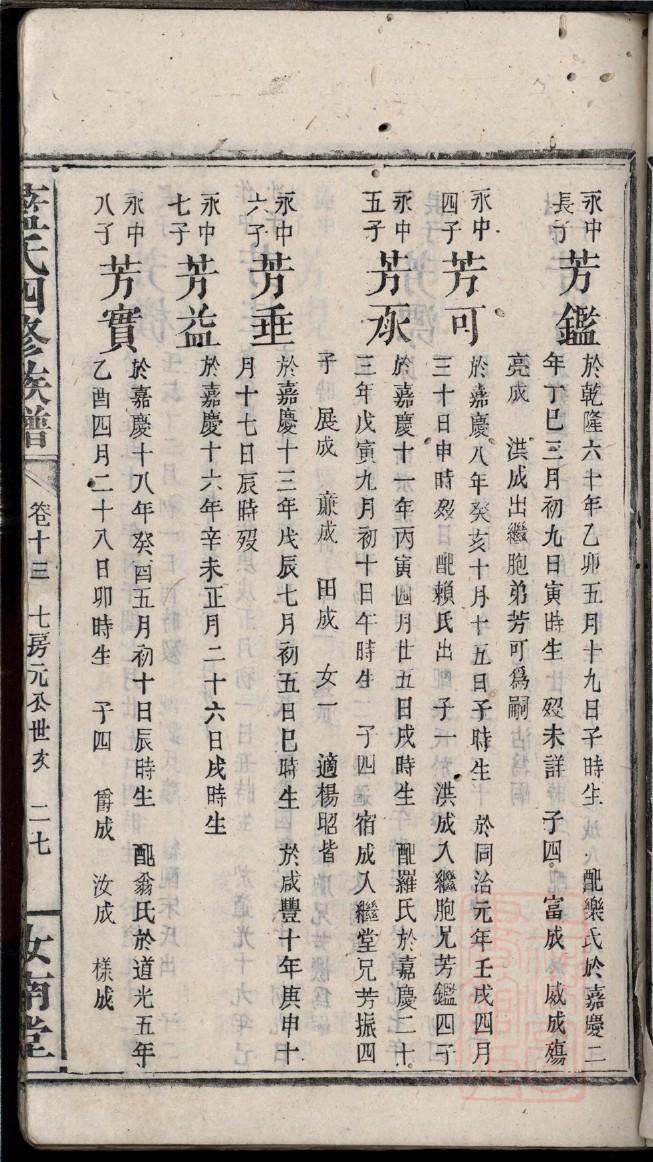 永中長子 芳鑑 於乾隆六十年乙卯五月十九日子時生 配樂氏於嘉慶二
年丁巳三月初九日寅時生 歿未詳 子四 富成 威成殤
亮成 洪成出繼胞弟芳可爲嗣
永中四子 芳可 於嘉慶八年癸亥十月十五日子時生 於同治元年壬戌四月
三十日申時歿 配賴氏出 子一 洪成入繼胞兄芳鑑四子
永中五子 芳承 於嘉慶十一年丙寅四月廿五日戌時生 配羅氏於嘉慶二十
三年戊寅九月初十日午時生 子四 宿成入繼堂兄芳振四
子 展成 亷成 田成 女一 適楊昭皆
永中六子 芳垂 於嘉慶十三年戊辰七月初五日巳時生 於咸豐十年庚申十
月十七日辰時歿
永中七子 芳益 於嘉慶十六年辛未正月二十六日戌時生
永中八子 芳實 於嘉慶十八年癸酉五月初十日辰時生 配翁氏於道光五年
乙酉四月二十八日卯時生 子四 爵成 汝成 樣成
氏四修族譜 卷十三 七房元公世亥 二七 汝南堂